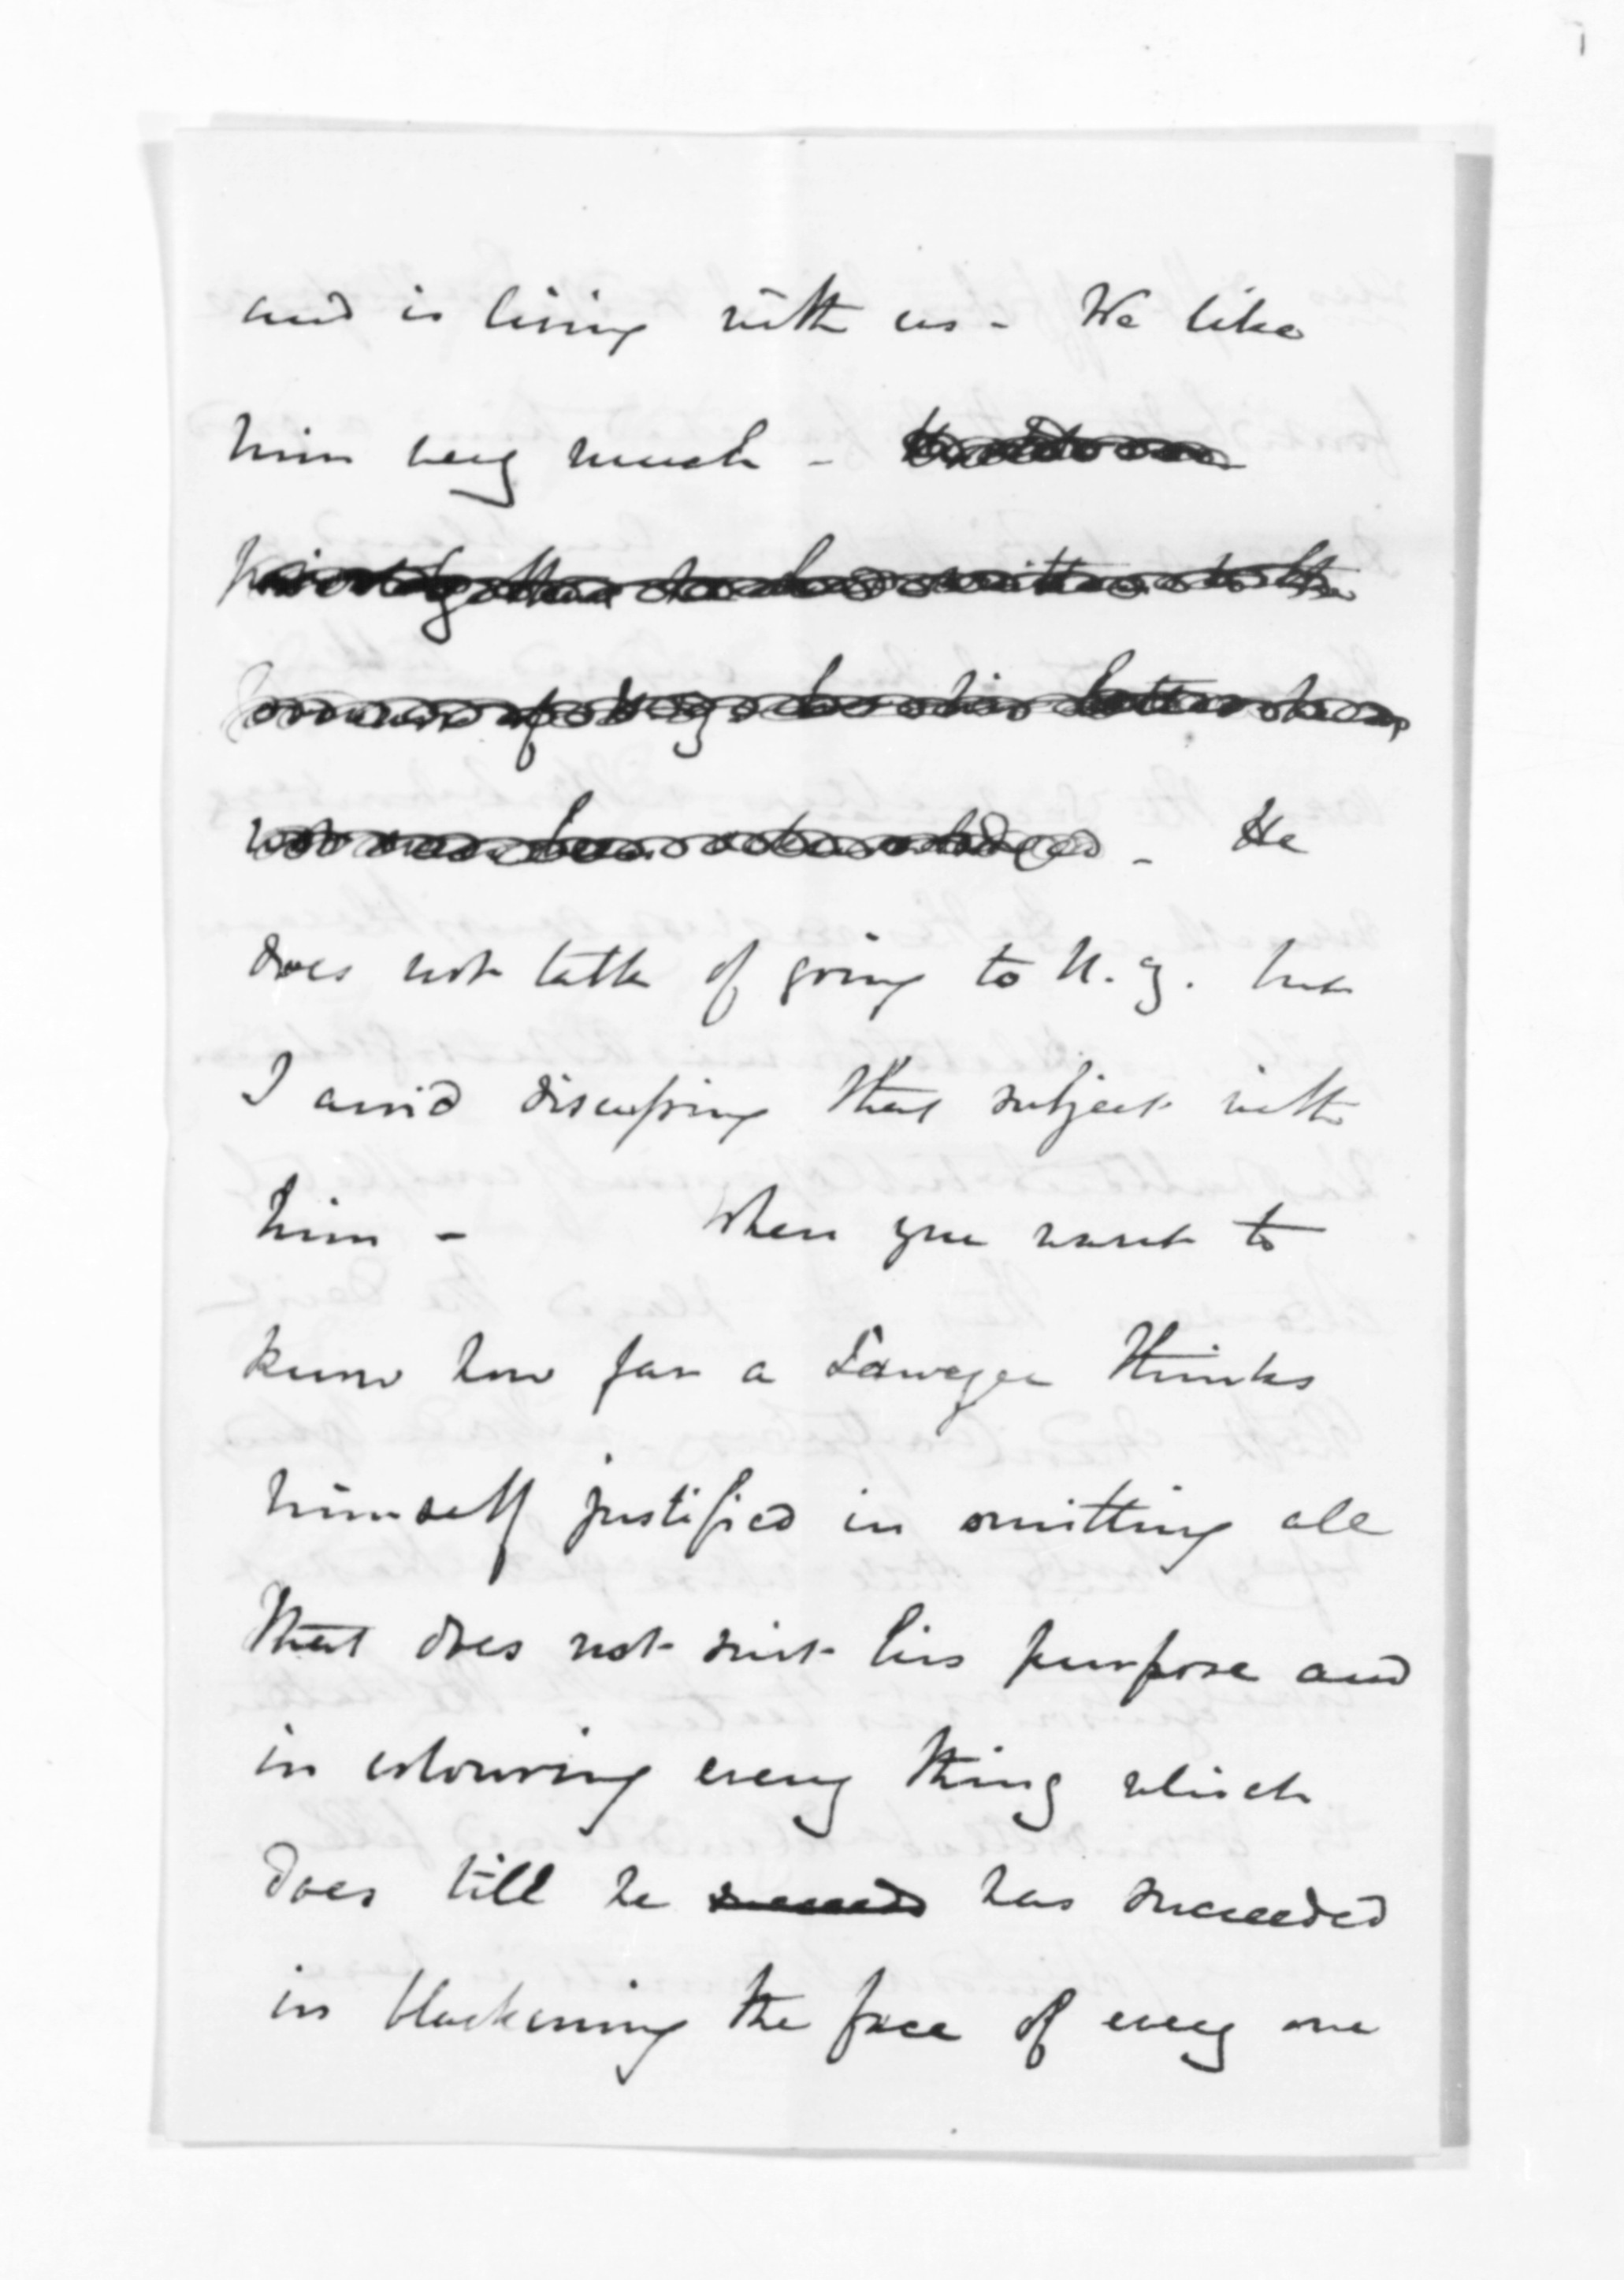 and is living with us - We like
him very much -
written to the
of N.Z. his letters
- He
does not talk of going to N.Z. but
I avoid discussing that subject with
him - When you want to
know how far a Lawyer thinks
himself justified in omitting all
that does not suit his purpose and
in colouring every thing which
does till he succeeds has succeeded
in blackening the face of every one